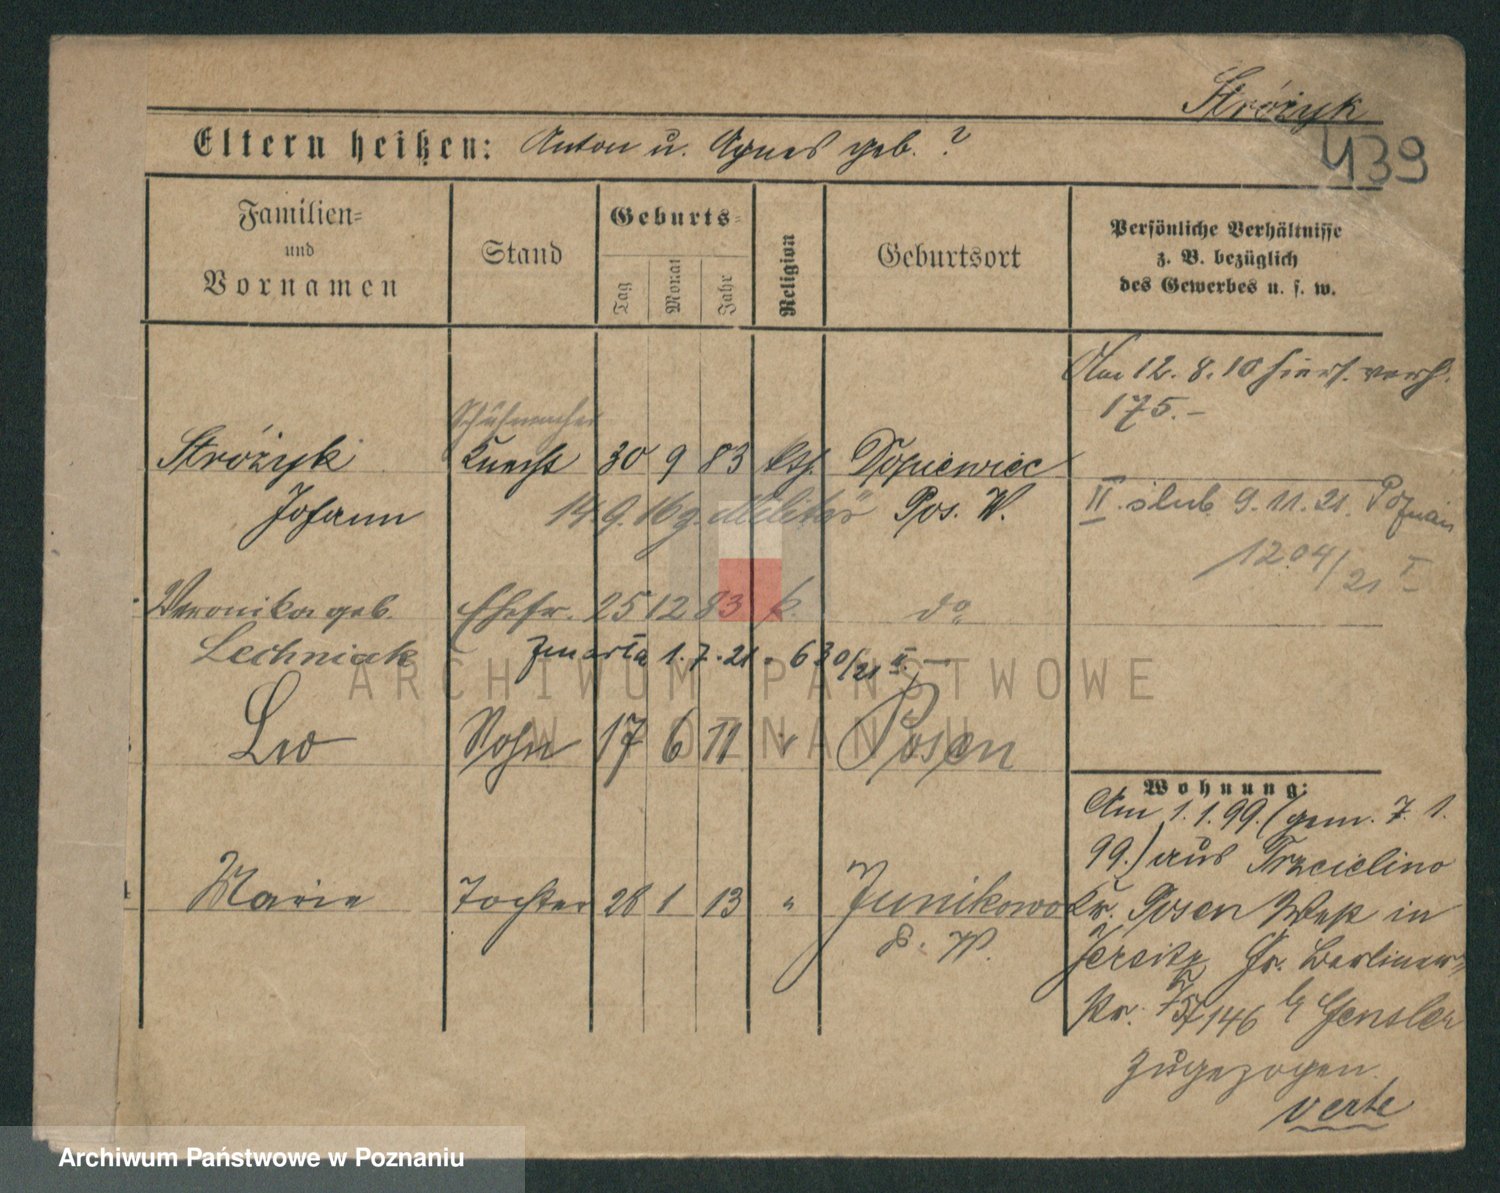 Stróżyk
439
Eltern heißen: Anton u. Agnes geb. ?
Familien=
und
Vornamen
Stand
Geburts=
Tag
Monat
Jahr
Religion
Geburtsort
Persönliche Verhältnisse
z. B. bezüglich
des Gewerbes u. s. w.
Am 12. 8. 10 hiers. verh.
175.-
Schuhmacher
Stróżyk Knecht 30 9 83 kth. Dopiewiec
Johann 14 9. 16 z. Militär Pos. W.
II. slub 9.11.21. Poznań
1204/21 I
Veronika geb. Ehefr. 25 12 83 k. do
Lechniak zmarła 1.7.21. 630/21 II.
Leo Sohn 17 6 11 " Posen
Wohnung:
Am 1.1.99. (gem. 7. 1.
99.) aus Trzcielino
Marie Tochter 28 1 13 " Junikowo
Kr. Posen West in
P. W.
Jersitz Gr. Berliner=
Str. 146 b/ Gensler
zugezogen.
verte
ARCHIWUM PAŃSTWOWE
W POZNANIU
Archiwum Państwowe w Poznaniu